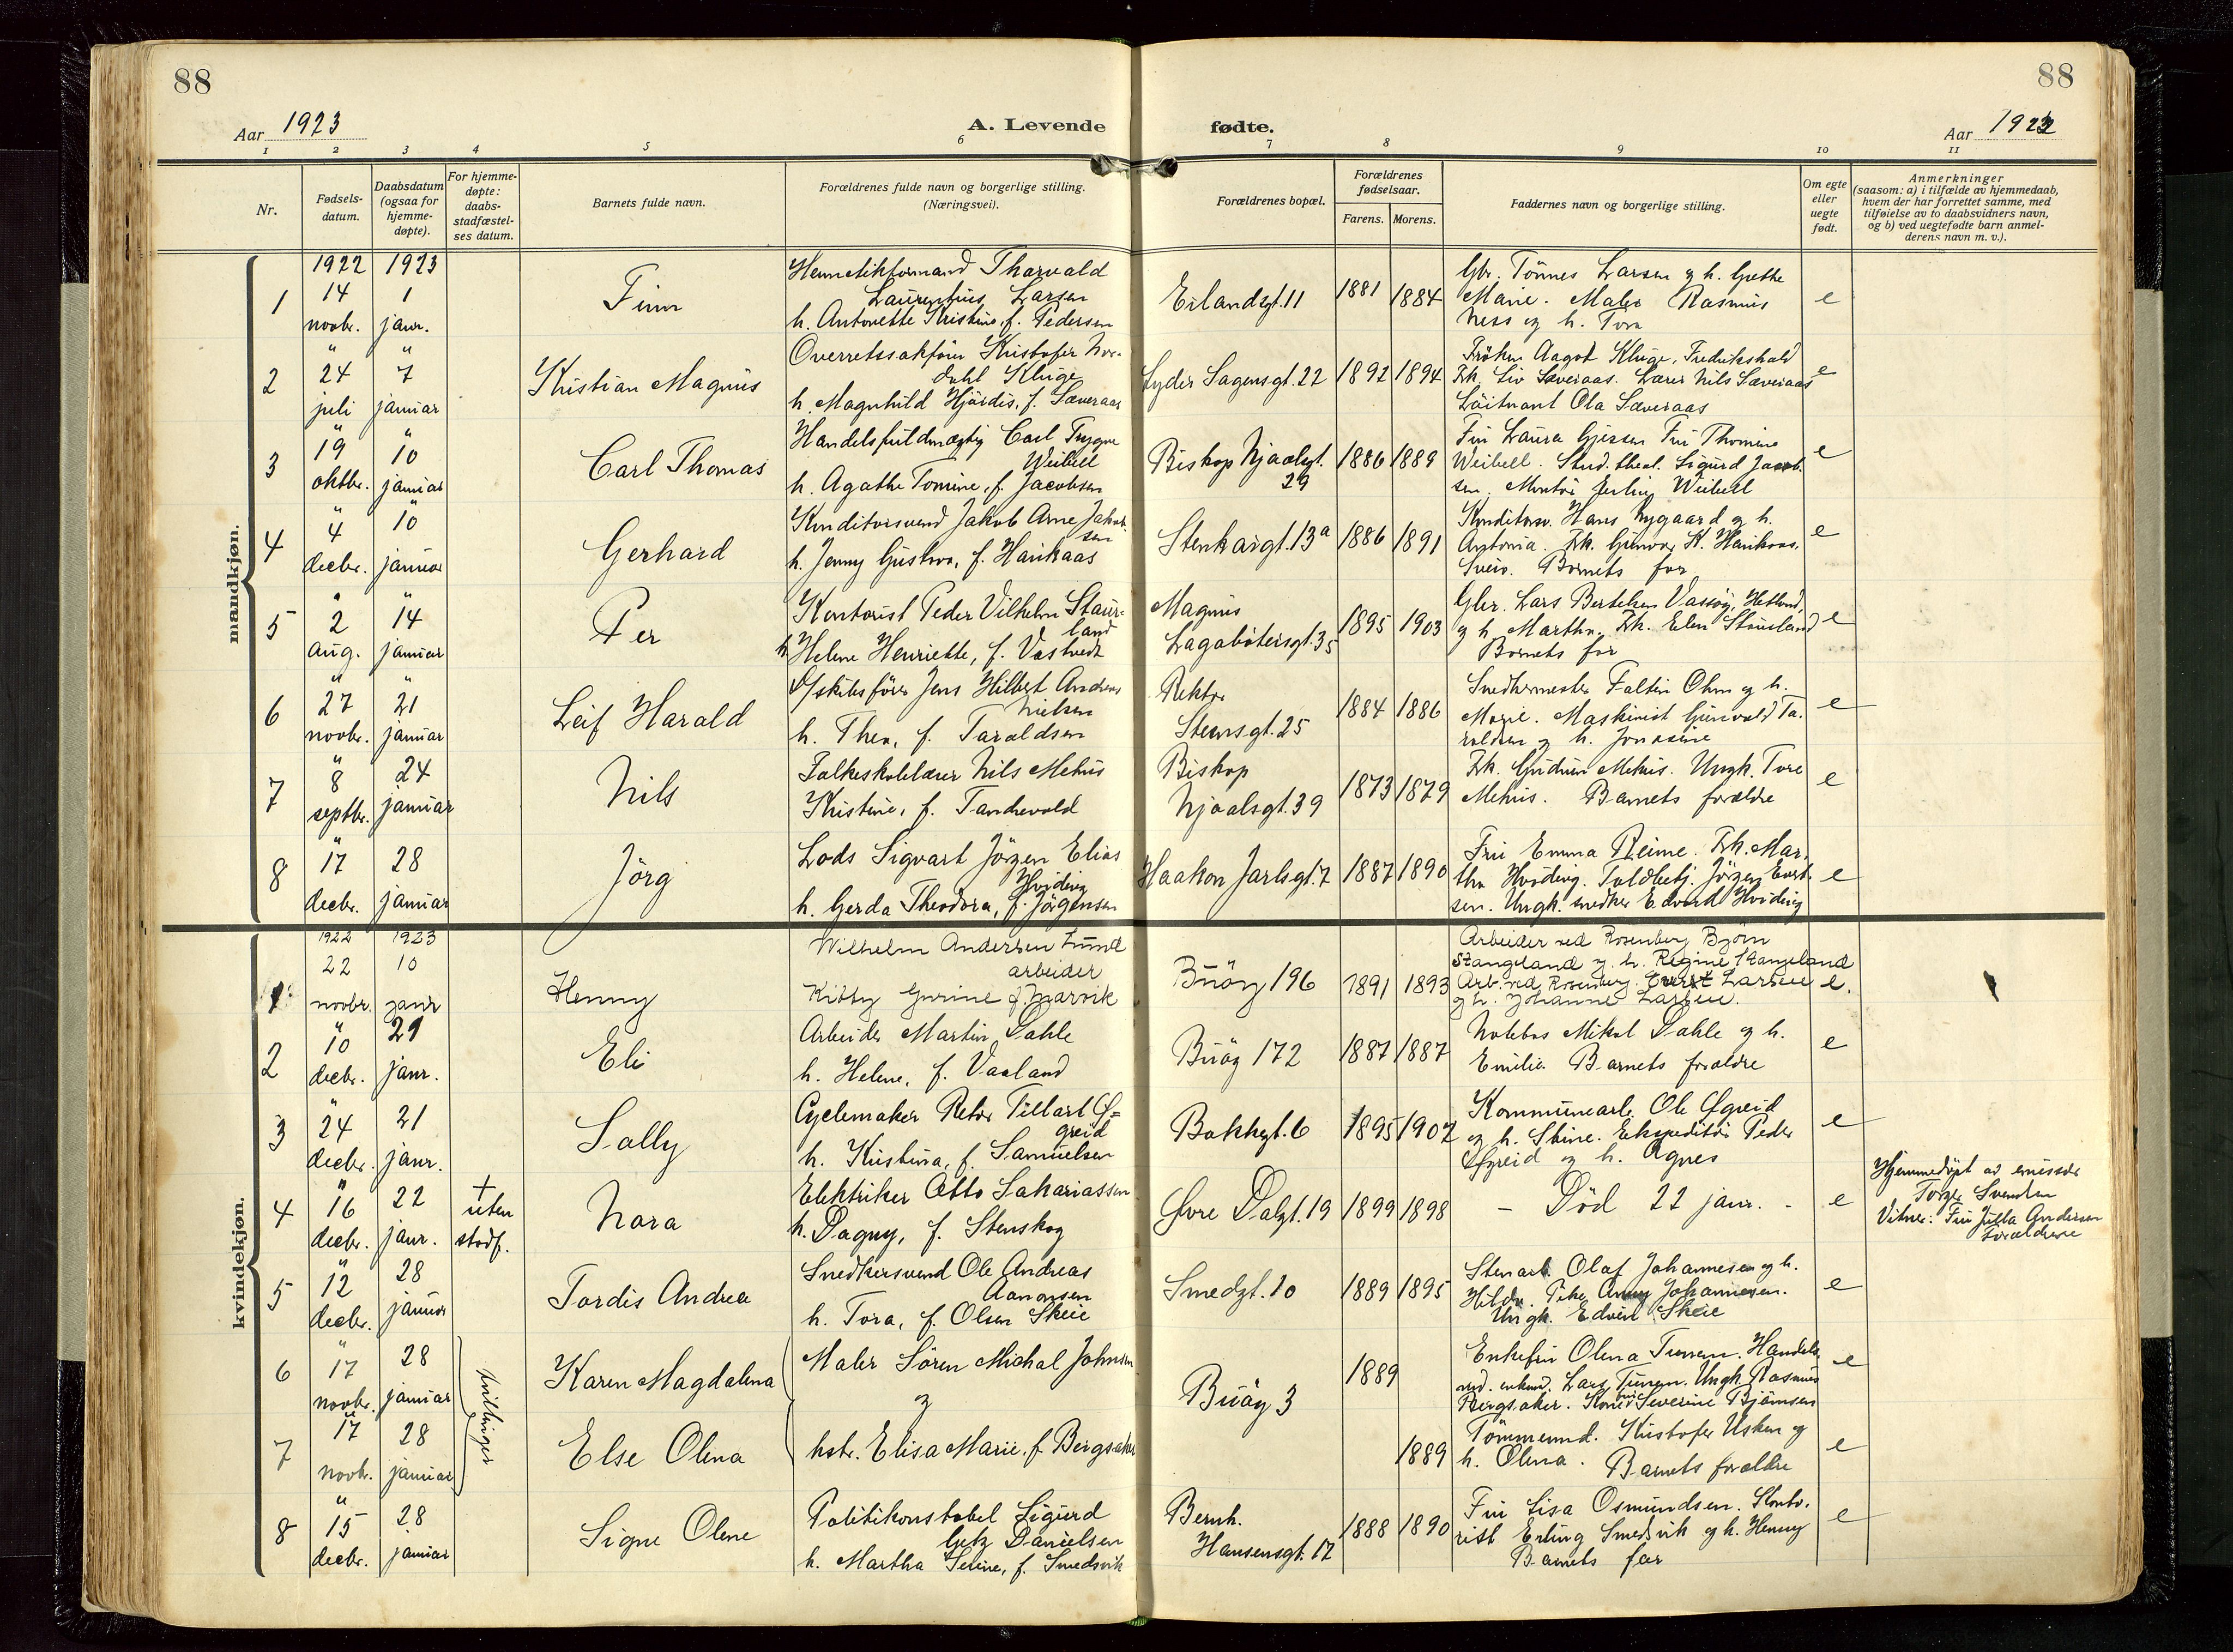 88
88
Aar 1923
A. Levende
fødte.
Aar 1923
1 2 3 4 5 6 7 8 9 10 11
Nr.
Fødsels-
datum.
Daabsdatum
(ogsaa for
hjemme-
døpte).
For hjemme-
døpte:
daabs-
stadfæstel-
ses datum.
Barnets fulde navn.
Forældrenes fulde navn og borgerlige stilling.
(Næringsvei).
Forældrenes bopæl.
Forældrenes
fødselsaar.
Farens. Morens.
Faddernes navn og borgerlige stilling.
Om egte
eller
uegte
født.
Anmerkninger
(saasom: a) i tilfælde av hjemmedaab,
hvem der har forrettet samme, med
tilføielse av to daabsvidners navn,
og b) ved uegtefødte barn anmel-
derens navn m. v.).
mandkjøn.
1
1922 1923
14 1
novbr. janr.
Finn
Hermetikformand Tharvald
Laurentius Larsen
h. Antonette Kristine, f. Pedersen
Erlandsgt. 11
1881 1884
Gbr. Tönnes Larsen og h. Grethe
Marie. Maler Rasmus
Ness og h. Tora
e
2
" "
24 7
juli januar
Kristian Magnus
Overretssakförer Kristofer Nor-
dahl Kluge
h. Magnhild Hjördis, f. Sæveraas
Lyder Sagensgt. 22
1892 1894
Fröken Aagot Kluge, Fredrikshald
Frk. Liv Sæveraas. Lærer Nils Sæveraas
Löitnant Ola Sæveraas
e
3
" "
19 10
oktbr. januar
Carl Thomas
Handelsfuldmægtig Carl Trygve
Weibell
h. Agathe Tomine, f. Jacobsen
Biskop Njaalsgt.
29
1886 1889
Fru Laura Gjersen Fru Thomine
Weibell. Stud. theol. Sigurd Jacob-
sen. Montör Erling Weibell
e
4
" "
4 10
decbr. januar
Gerhard
Konditorsvend Jakob Arne Jakob-
sen
h. Jenny Gustava, f. Haukaas
Stenkargt. 13a
1886 1891
Konditorsv. Hans Nygaard og h.
Antonia. Frk. Gunvor K. Haukaas,
Sveio. Barnets far
e
5
" "
2 14
aug. januar
Per
Kontorist Peder Vilhelm Staur-
land
h. Helene Henriette, f. Vastvedt
Magnus
Lagabøtersgt. 35
1895 1903
Gbr. Lars Bertelsen Vassöy, Hetland,
og h. Martha. Frk. Elen Stousland
Barnets far
e
6
" "
27 21
novbr. januar
Leif Harald
D/skibsförer Jens Hilbert Andreas
Nielsen
h. Thea, f. Taraldsen
Rektor
Steensgt. 25
1884 1886
Snedkermester Faltin Ohm og h.
Marie. Maskinist Gunvald Ta-
raldsen og h. Jonasine
e
7
"
8 24
septbr. januar
Nils
Folkeskolelærer Nils Mehus
Kristine, f. Tandrevold
Biskop
Njaalsgt. 39
1873 1879
Frk. Gudrun Mehus. Ungk. Tore
Mehus. Barnets forældre
e
8
"
17 28
decbr. januar
Jörg
Lods Sigvart Jörgen Elias
Hviding
h. Gerda Theodora, f. Jörgensen
Haakon Jarlsgt. 7
1887 1890
Fru Emma Reime. Frk. Mar-
tha Hviding. Toldbetj. Jörgen Evert-
sen. Ungk. snedker Edvard Hviding
e
kvindekjøn.
1
1922 1923
22 10
novbr. janr
Henny
Wilhelm Andersen Lunde
arbeider
Kitty Gurine f. Narvik
Buöy 196
1891 1893
Arbeider ved Rosenberg Björn
Stangeland og h. Regine Stangeland
Arb. ved Rosenberg. Evert Larsen
og h. Johanne Larsen.
e.
2
"
10 21
decbr. janr.
Eli
Arbeider Martin Dahle
h. Helene, f. Vaaland
Buöy 172
1887 1887
Notebas Mikal Dahle og h.
Emilie. Barnets forældre
e
3
"
24 21
decbr. janr.
Solly
Cyclemaker Peter Tillart Öf-
greid
h. Kristina, f. Samuelsen
Bakkegt. 6
1895 1902
Kommunearb. Ole Öfgreid
og h. Stine. Ekspeditör Peder
Öfgreid og h. Agnes
e
4
"
16 22
decbr. janr.
+
uten
stadf.
Nora
Elektriker Otto Sakariassen
h. Dagny, f. Stenskog
Øvre Dalgt. 19
1899 1898
– Död 22 janr. –
e
Hjemmedöpt av emissær
Torger Svendsen
Vitner: Fru Jutta Andersen
Forældrene
5
"
12 28
decbr. januar
Tordis Andrea
Snedkersvend Ole Andreas
Aanonsen
h. Tora, f. Olsen Skeie
Smedgt. 10
1889 1895
Stenarb. Olaf Johannesen og h.
Hilda. Pike Anny Johannesen.
Ungk. Edvin Skeie
e
6
"
17 28
novbr. januar
tvillinger
Karen Magdalena
Maler Sören Michal Johnsen
og
Buöy 3
1889
Enkefru Olena Tunem. Handels-
Lars Tunem. Ungk. Rasmus
Bergsaker. Severine Bjömsen
e
7
"
17 28
novbr. januar
Else Olena
hstr. Elisa Marie, f. Bergsaker
1889
Tömmermd. Kristofer Usken og
h. Olena. Barnets forældre
e
8
"
15 28
decbr. januar
Signe Olene
Politikonstabel Sigurd
Getz Danielsen
h. Martha Serine, f. Smedsvik
Bernh.
Hansensgt. 17
1888 1890
Fru Lisa Osmundsen. Konto-
rist Erling Smedsvik og h. Henny
Barnets far
e